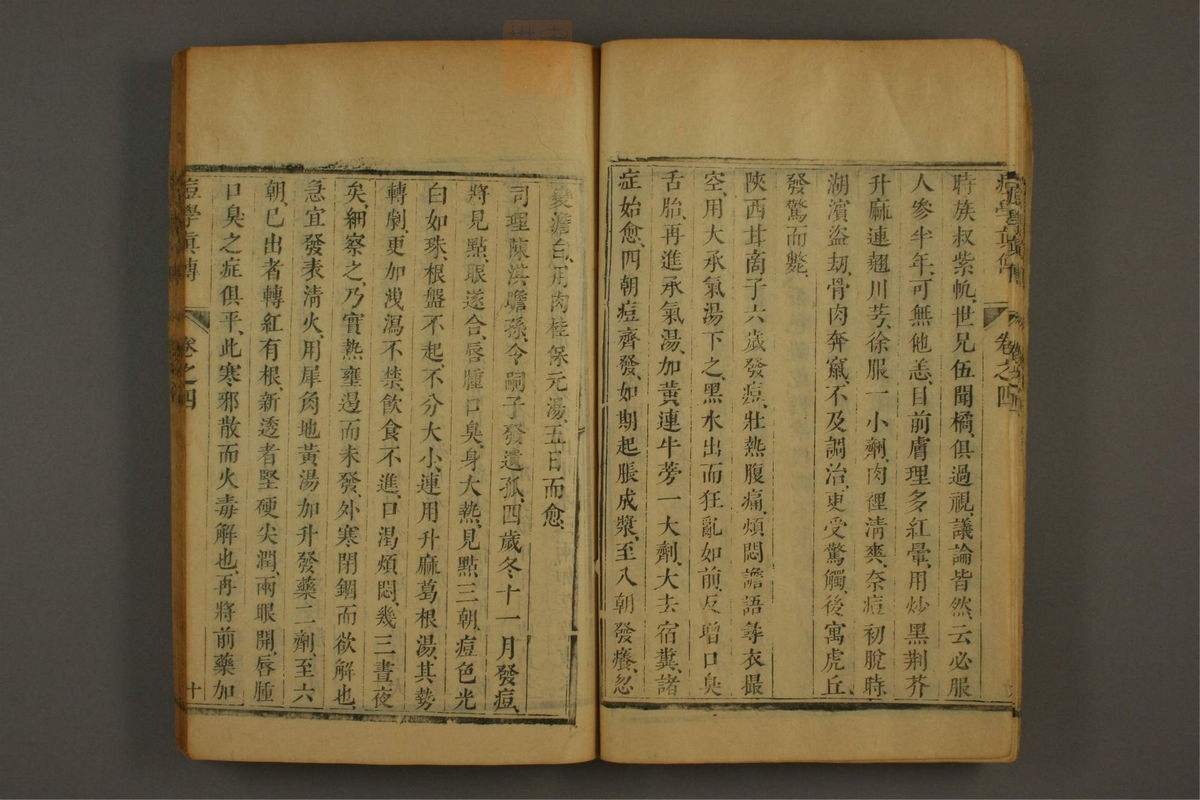 痘學眞傳 卷之四
時族叔紫帆、世兄伍聞橘、俱過視、議論皆然、云必服
人參半年、可無他恙、目前膚理多紅暈、用炒黑荆芥
升麻連翹川芎、徐服一小劑、肉裡清爽、奈痘初脫時、
湖濱盜刼、骨肉奔竄、不及調治、更受驚觸、後寓虎丘、
發驚而斃、
陝西甘商子六歲發痘、壯熱腹痛、煩悶譫語尋衣撮
空、用大承氣湯下之、黑水出而狂亂如前、反增口臭
舌胎、再進承氣湯、加黃連牛蒡一大劑、大去宿糞、諸
症始愈、四朝痘齊發、如期起脹成漿、至八朝發癢、忽
變澹白、用肉桂保元湯、五日而愈、
司理陳淇瞻孫、令嗣子發遺孤、四歲冬十一月發痘、
將見點、眼遂合、唇腫口臭、身大熱、見點三朝、痘色光
白如珠、根盤不起、不分大小、連用升麻葛根湯、其勢
轉劇、更加洩瀉不禁、飲食不進、口渴煩悶、幾三晝夜
矣、細察之、乃實熱壅遏而未發、外寒閉錮而欲解也、
急宜發表清火、用犀角地黃湯加升發藥二劑、至六
朝、已出者轉紅有根、新透者堅硬尖潤、兩眼開、唇腫
口臭之症俱平、此寒邪散而火毒解也、再將前藥加
痘學眞傳 卷之四 十